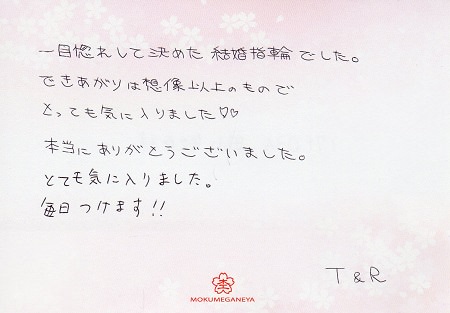 一目惚れして決めた結婚指輪でした。
できあがりは想像以上のもので
とっても気に入りました♡♡
本当にありがとうございました。
とても気に入りました。
毎日つけます!!
T & R
MOKUMEGANEYA